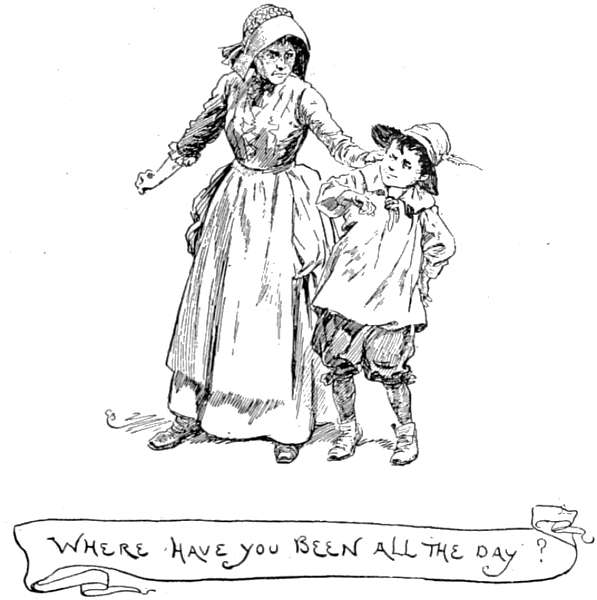 WHERE HAVE YOU BEEN ALL THE DAY ?